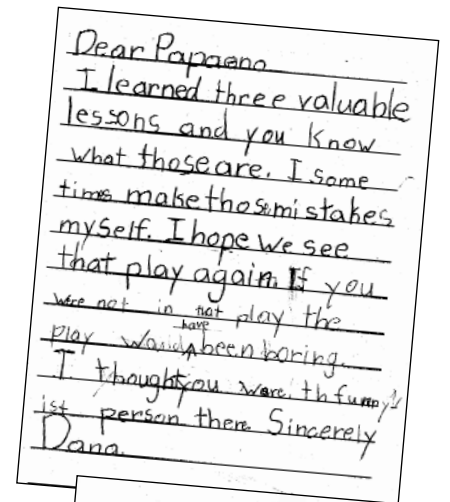 Dear Papageno
I learned three valuable
lessons and you know
what those are. I some
times make those mistakes
myself. I hope we see
that play again. If you
were not in that play the
play would have been boring.
I thought you were th funny
ist person there. Sincerely
Dana